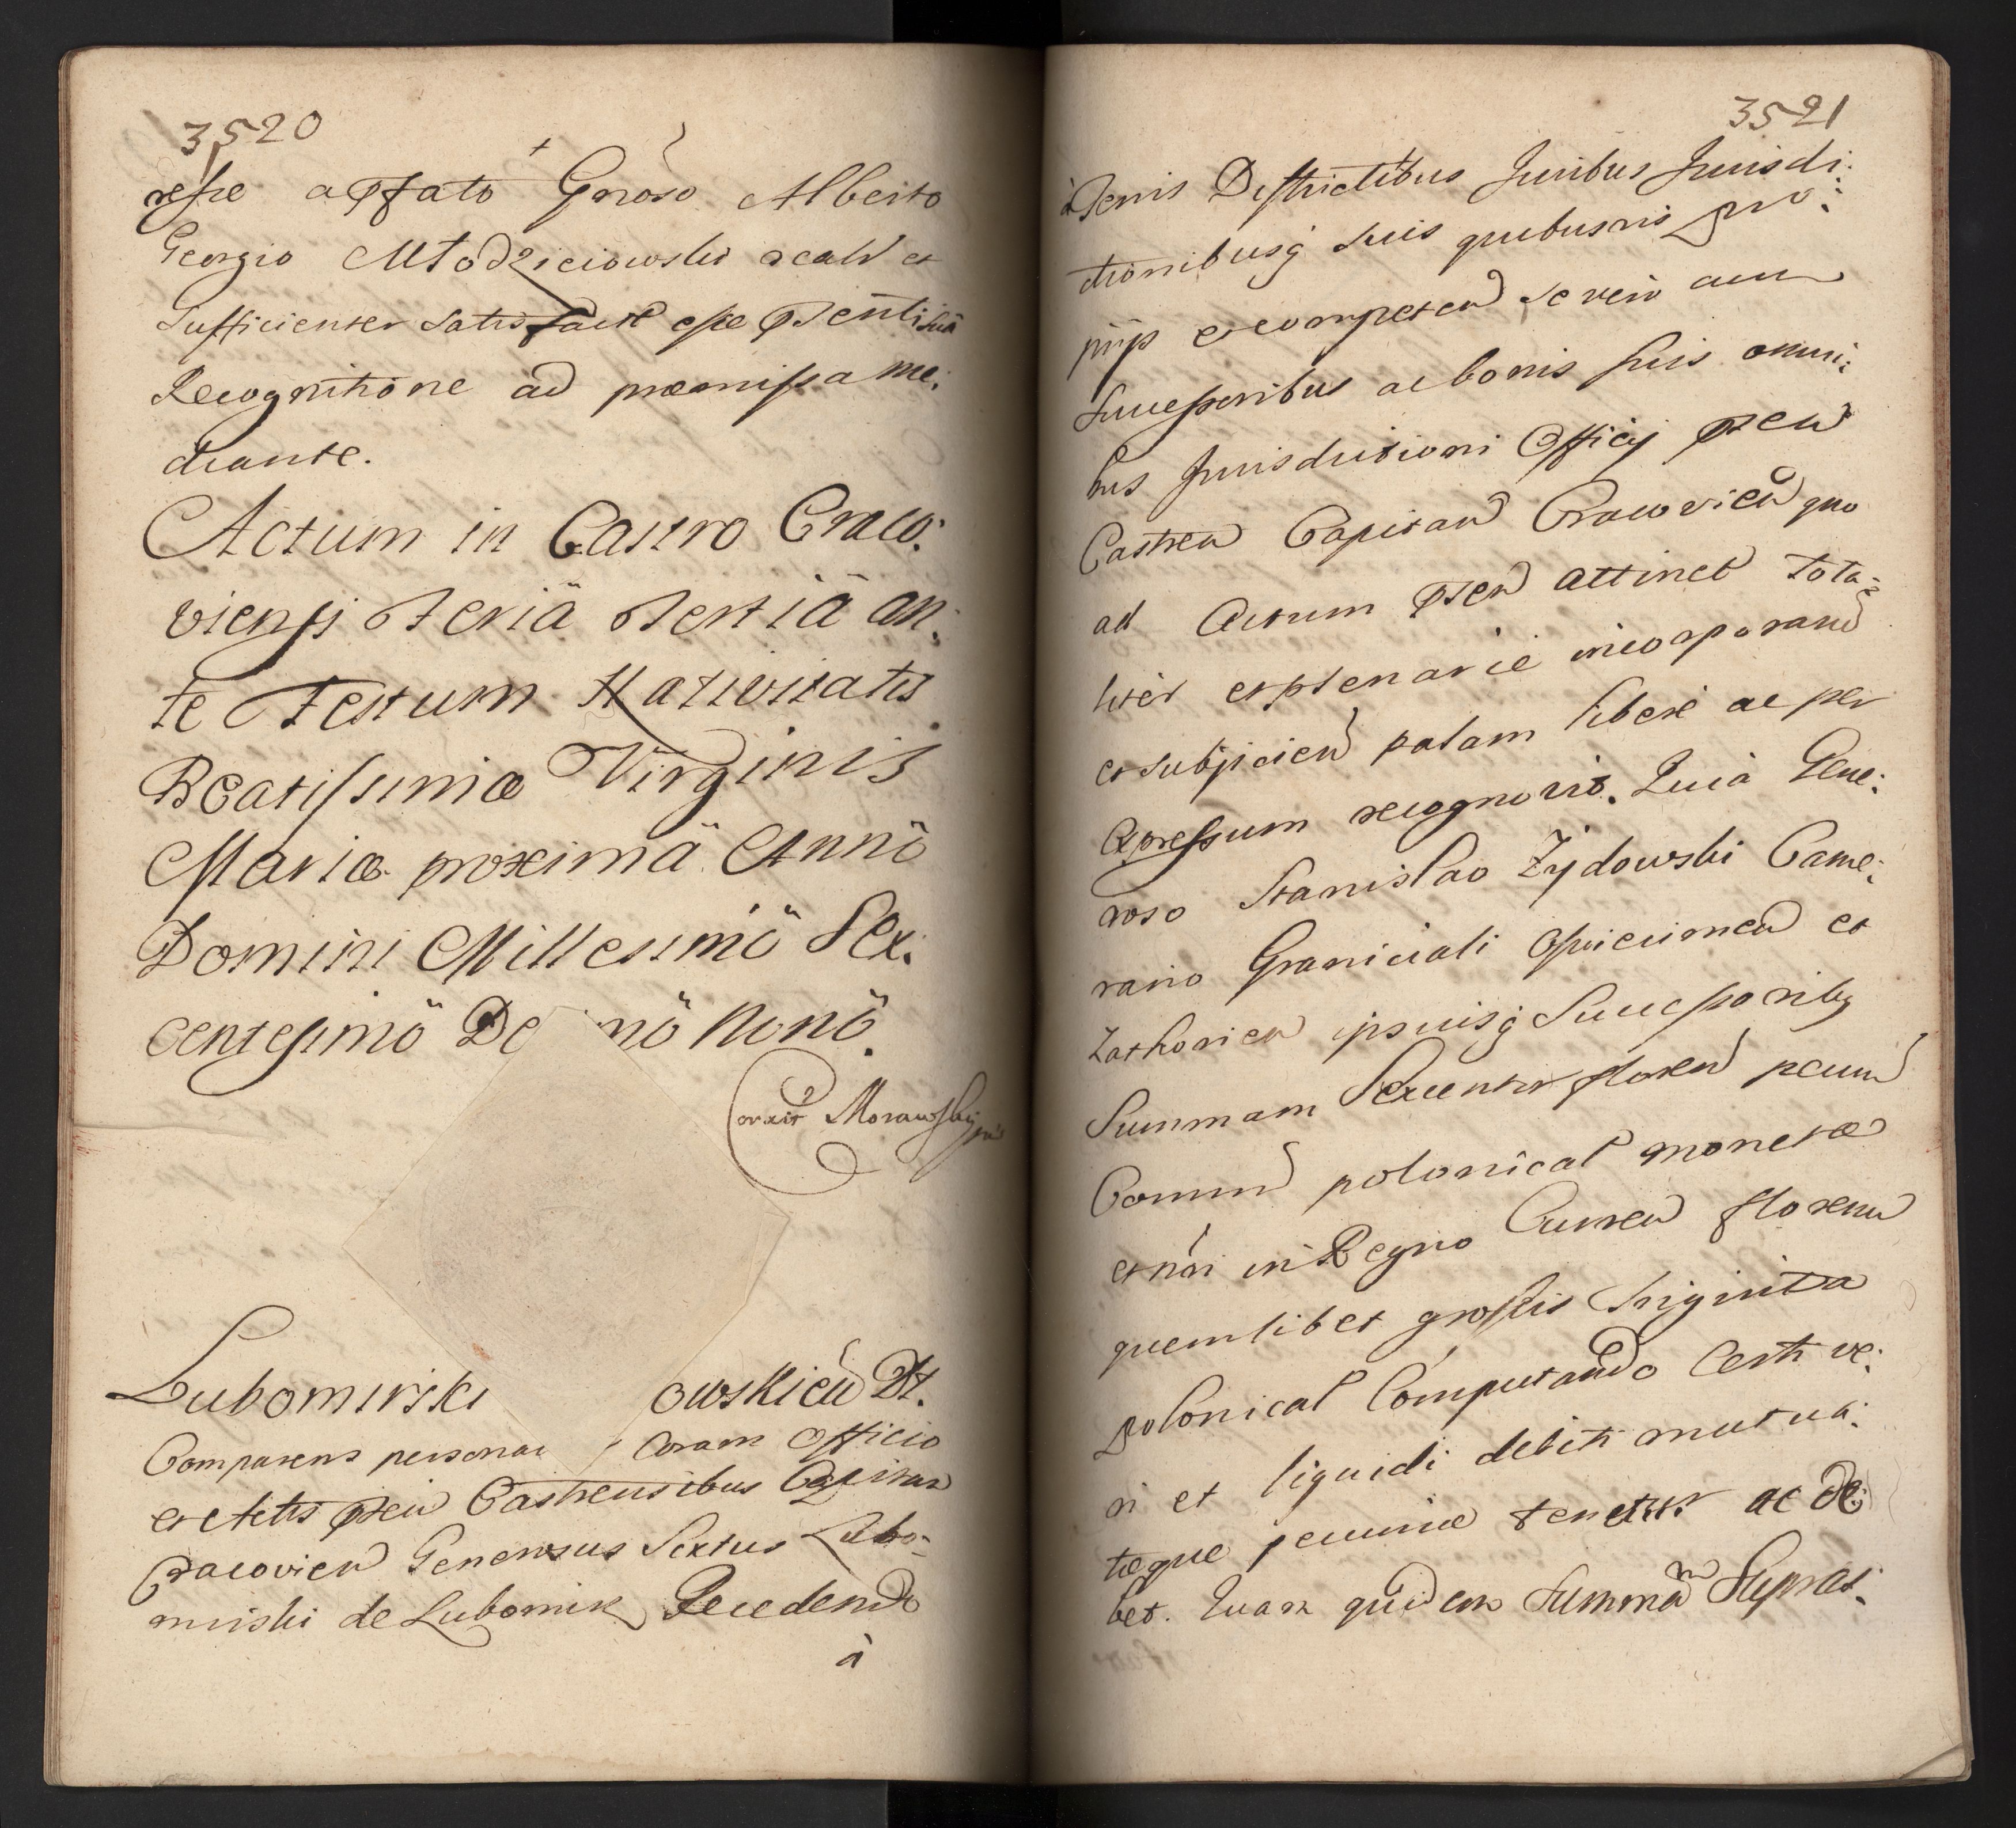 3520
resse a Pfato Gnoso Alberto
Georgio Młodzieiowski realr et
Sufficienter satisfact esse Psenti sua
Recognitione ad præmissa me:
diante.
Actum in Castro Craco:
viensi Feriä Tertiä an:
te Festum Nativitatis
Beatissimæ Virginis
Mariæ proximä Annö
Domini Millesimö Sex:
centesimö De nö Nonö.
Corrxit Morawsky
Lubomirski owskien Dt.
Comparens personal Coram Officio
et Actis Psen Castrensibus Capitan
Cracovien Generosus Sextus Lubo:
mirski de Lubomir Recedendo
à
3521
à Terris Districtibus Juribus Jurisdi:
ctionibusq suis quibusvis pro:
prijs et competen se vero cum
Successoribus ac bonis suis omni:
bus Jurisdictioni Officij Psen
Castren Capitan Cracovien quo
ad Actum Psen attinet tota:
liter et plenarie incorporand
et subjicien palam libere ac per
expressum recognovit. Quia Gene:
roso Stanislao Żydowski Came:
rario Graniciali Oswiecimen et
Zathorien ipsiusq Successoribq
Summam Sexcentor floren pecun
Commun polonical monetæ
et nri in Regno Curren florenum
quemlibet grossis triginta
polonical Computando Certi ve:
ri et liquidi debiti mutua:
tæque pecuniæ tenetur ac de:
bet. Quam quidem Summam Supras: